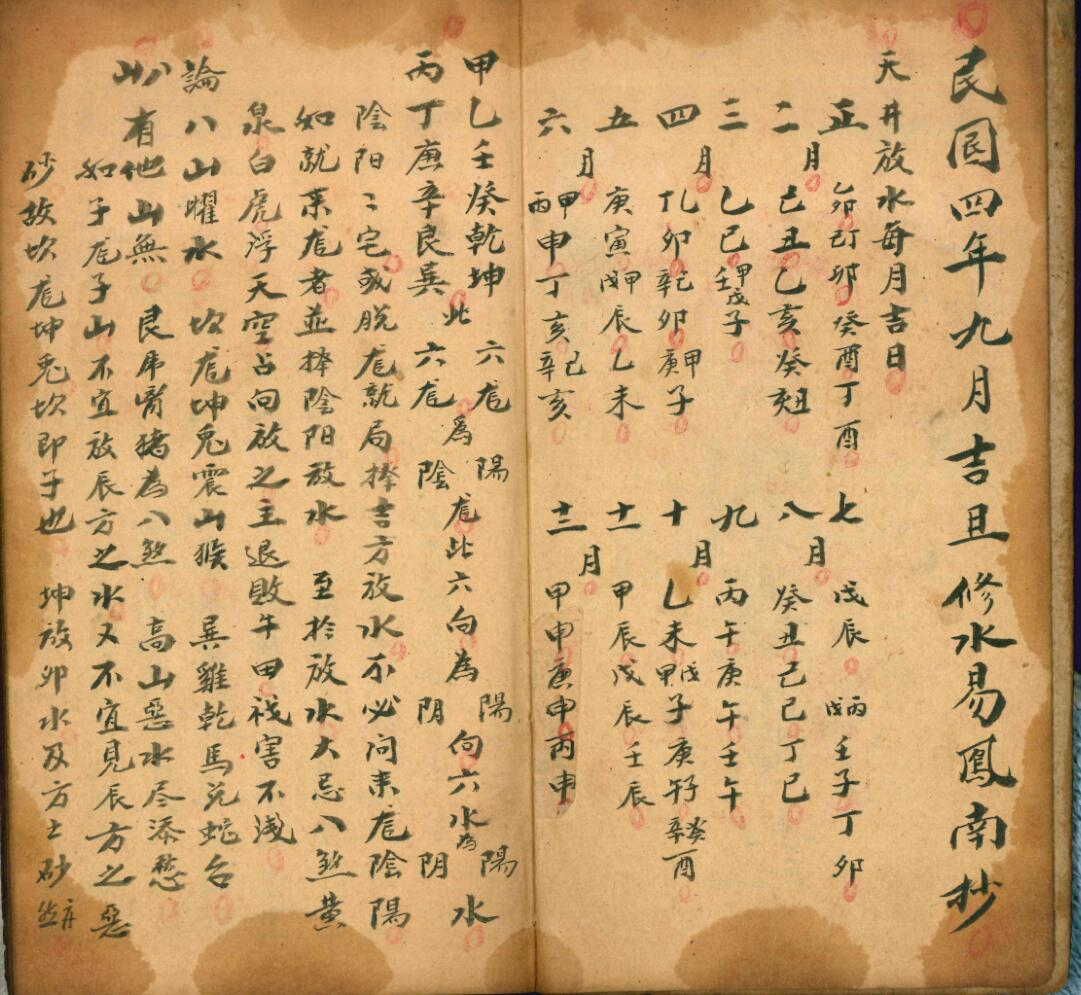 民囯四年九月吉旦修水易鳳南抄
天井放水每月吉日
正月 乙卯己丁卯癸酉丁酉
二月 己丑乙亥癸丑
三月 乙巳壬甲戊子
四月 丁卯辛乾卯庚甲子
五月 庚寅戊甲辰乙未
六月 丙甲申丁亥辛己亥
七月 戊辰戊丙壬子丁卯
八月 癸丑己巳丁巳
九月 丙午庚午壬午
十月 乙未甲戊子庚午辛癸酉
十一月 甲辰戊辰壬辰
十二月 甲申庚申丙申
甲乙壬癸乾坤此六龙為陽龙此六向為陽向六水為陽水
丙丁庚辛艮巽六龙陰阴阴
陰阳二宅或脱龙就局捧吉方放水不必问来龙陰陽
如就来龙者並捧陰阳放水 至於放水大忌八煞黄
泉白虎浮天空占向放之主退敗午田禍害不浅
論八山曜水 坎龙坤兎震山猴 巽雞乾馬兑蛇台
艮虎离猪為八煞 高山惡水尽添愁
山山有他山無
如子龙子山不宜放辰方之水又不宜見辰方之惡
砂故坎龙坤兎坎即子也 坤放卯水及方士砂